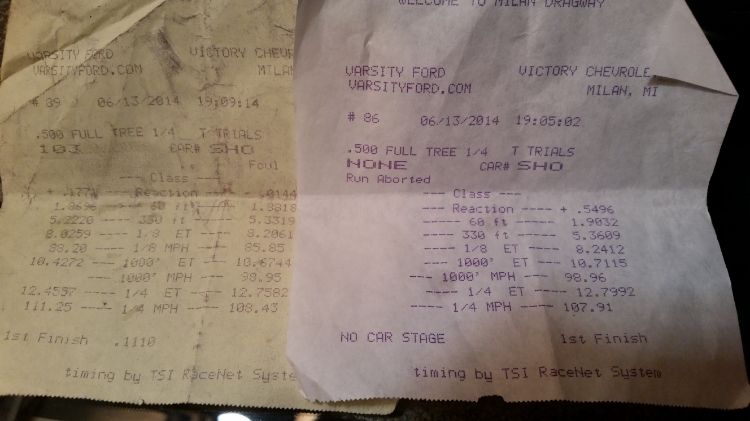 VARSITY FORD VICTORY CHEVR
VARSITYFORD.COM MILAN
# 89 06/13/2014 19:09:14
.500 FULL TREE 1/4 T TRIALS
CAR# SHO
Foul
--- Class ---
Reaction -.0144
1.8696 ---- 60 ft ---- 1.8818
5.2220 ---- 330 ft ---- 5.3319
8.0259 ---- 1/8 ET ---- 8.2061
88.20 ---- 1/8 MPH ---- 85.85
10.4272 ---- 1000' ET ---- 10.6744
--- 1000' MPH ---- 98.95
12.4557 ---- 1/4 ET ---- 12.7582
111.25 ---- 1/4 MPH ---- 108.43
1st Finish .1110
timing by TSI RaceNet Syste
WELCOME TO MILAN DRAGWAY
VARSITY FORD VICTORY CHEVROLE
VARSITYFORD.COM MILAN, MI
# 86 06/13/2014 19:05:02
.500 FULL TREE 1/4 T TRIALS
NONE CAR# SHO
Run Aborted
--- Class ---
--- Reaction ---- + .5496
---- 60 ft ---- 1.9032
---- 330 ft ---- 5.3609
---- 1/8 ET ---- 8.2412
---- 1000' ET ---- 10.7115
--- 1000' MPH ---- 98.96
---- 1/4 ET ---- 12.7992
---- 1/4 MPH ---- 107.91
NO CAR STAGE 1st Finish
timing by TSI RaceNet System